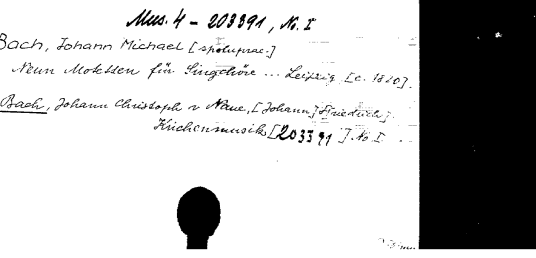 Mus. 4 - 203391, No. I
Bach, Johann Michael [spoluprac.]
Neun Motetten für Singchöre ... Leipzig [c. 1820].
Bach, Johann Christoph v Naue, [Johann] Friedrich].
Kirchenmusik [203391]. No I